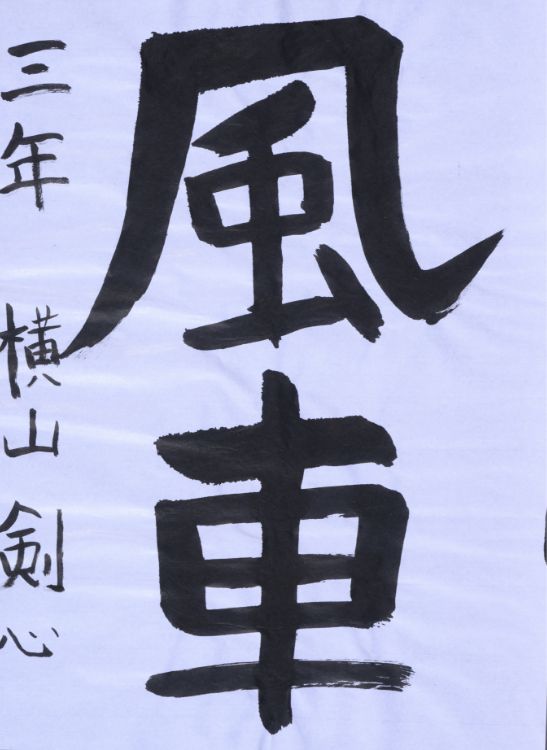 風車
三年 横山 剣心